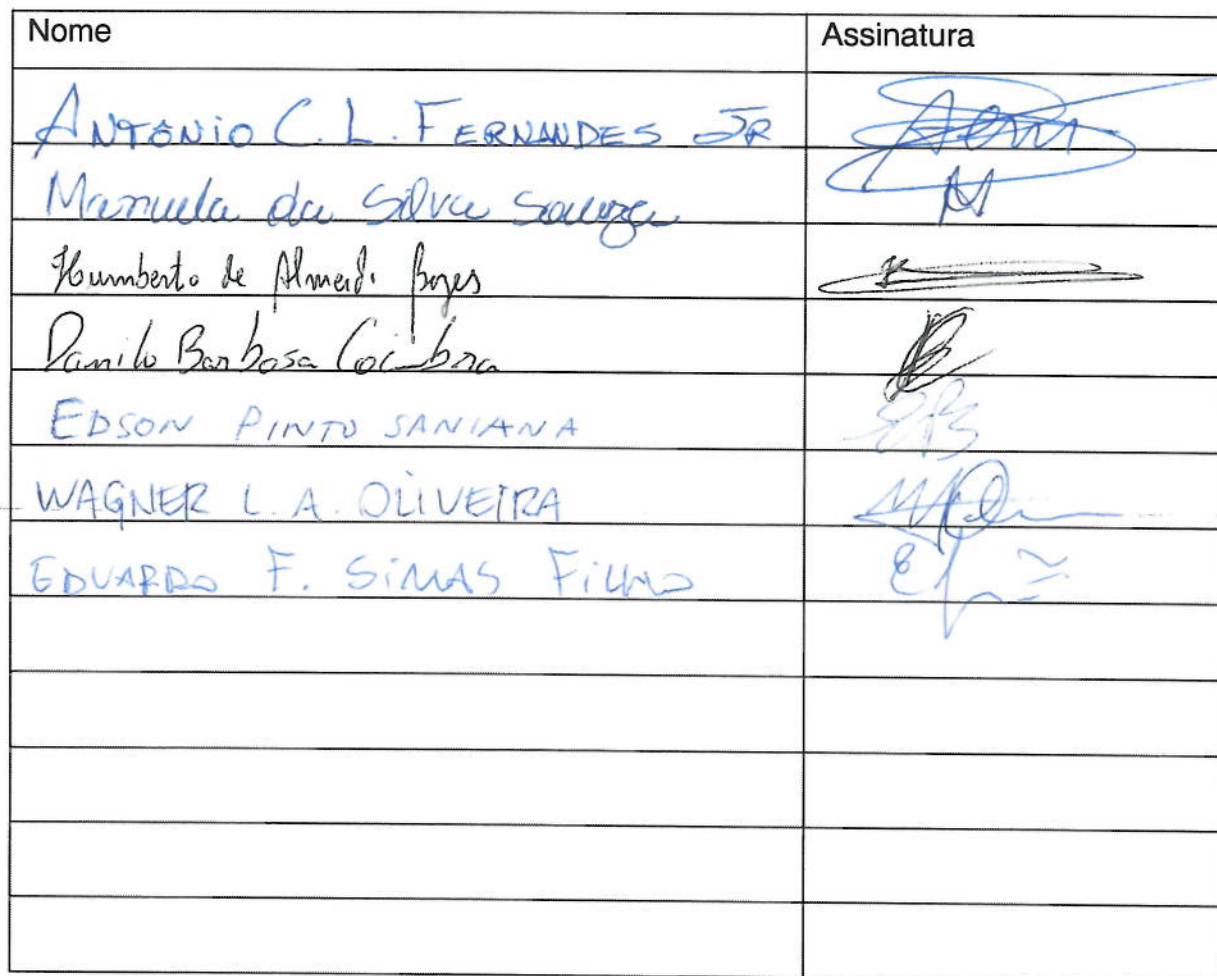 Nome Assinatura
ANTÔNIO C. L. FERNANDES JR
Manuela da Silva Souza
Humberto de Almeid. Borges
Danilo Barbosa Coimbra
EDSON PINTO SANTANA EPS
WAGNER L. A. OLIVEIRA
EDUARDO F. SIMAS FILHO